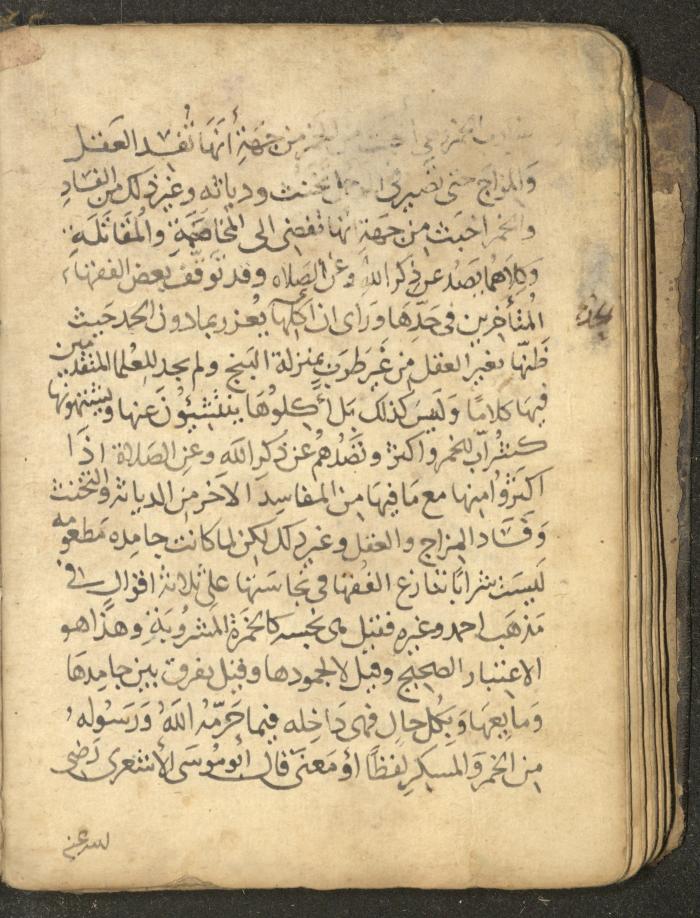 شارب الخمر وهي أخبث من الخمر من جهة أنها تفسد العقل
والمزاج حتى تصير في الرجل تخنث ودياثه وغير ذلك من الفساد
والخمر اخبث من جهة انها تفضى الى المخاصمة والمقاتلة
وكلاهما يصد عن ذكر الله وعن الصلاه وقد توقف بعض الفقهاء
المتأخرين في حدها ورأى ان اكلها يعزر بما دون الحد حيث
ظنها تغير العقل من غير طرب بمنزلة البنج ولم يجد للعلما المتقدمين
فيها كلاما وليس كذلك بل أكلوها ينتشيون عنها ويشتهونها
كشراب الخمر واكثر وتصدهم عن ذكر الله وعن الصلاة اذا
اكثروا منها مع ما فيها من المفاسد الاخر من الدياثة والتخنث
وفساد المزاج والعقل وغير ذلك لكن لما كانت جامده مطعومه
ليست شرابا تنازع الفقها في نجاستها على ثلاثة اقوال في
مذهب احمد وغيره فقيل هى نجسه كالخمرة المشروبة وهذا هو
الاعتبار الصحيح وقيل لا لجمودها وقيل يفرق بين جامدها
ومايعها وبكل حال فهى داخله فيما حرمه الله ورسوله
من الخمر والمسكر لفظا أو معنى قال ابو موسى الأشعرى رضى
الله عنه